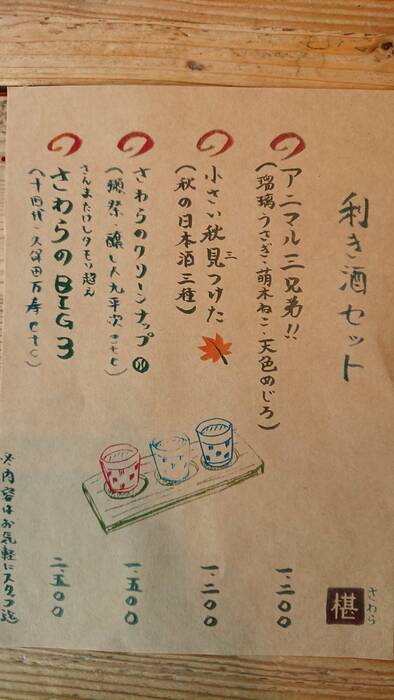 利き酒セット
アニマル三兄弟!!
(瑠璃うさぎ・萌木ねこ・天色めじろ)
一.二〇〇
小さい秋見つけた
三
(秋の日本酒三種)
一.二〇〇
さわらのクリーンナップ
(獺祭 醸し人九平次 etc)
一.五〇〇
さんまたけしタモリ超え
さわらのBIG3
(十四代・久保田万寿 etc)
二.五〇〇
※内容はお気軽にスタッフ迄
さわら
椹